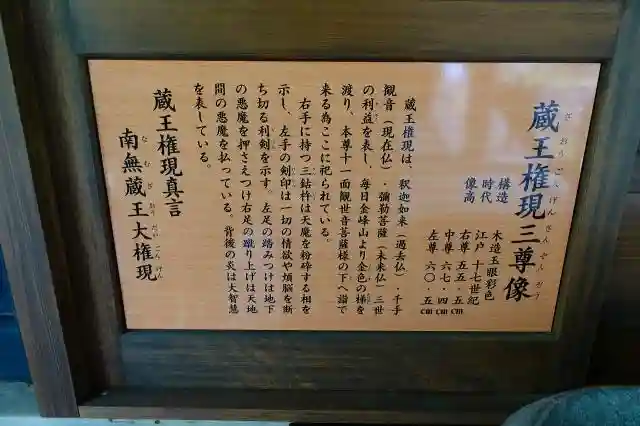 蔵王権現三尊像
ざおうごんげんさんぞんぞう
構造 木造玉眼彩色
時代 江戸 十七世紀
像高 右尊 五五・五cm
中尊 六七・四cm
左尊 六〇・五cm
蔵王権現は、釈迦如来(過去仏)・千手
観音(現在仏)・彌勒菩薩(未来仏)三世
の利益を表し、毎日金峰山より金色の梯を
渡り、本尊十一面観世音菩薩様の下へ詣で
来る為ここに祀られている。
右手に持つ三鈷杵は天魔を粉砕する相を
示し、左手の剣印は一切の情欲や煩悩を断
ち切る利剣を示す。左足の踏みつけは地下
の悪魔を押さえつけ右足の蹴り上げは天地
間の悪魔を払っている。背後の炎は大智慧
を表している。
蔵王権現真言
南無蔵王大権現
なむざおうだいごんげん